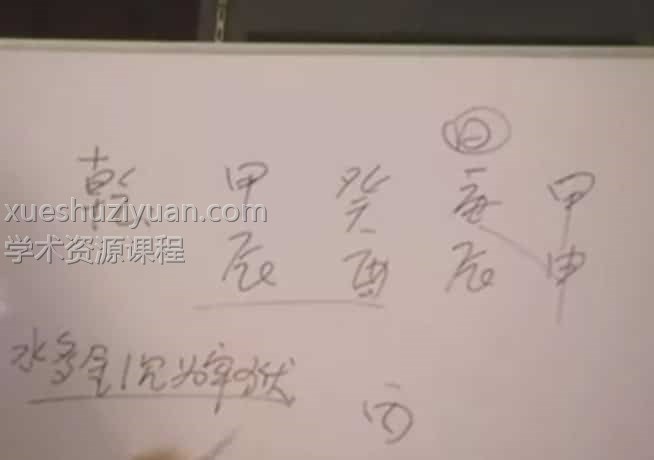 日
乾 甲 癸 庚 甲
xueshuziyuan.com
学术资源课程
辰 酉 辰 申
水多金沉为